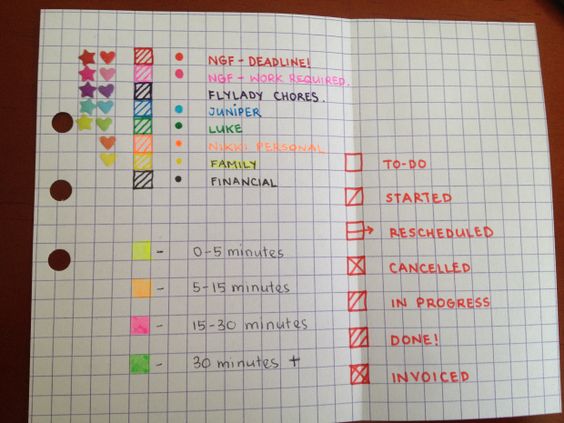 NGF - DEADLINE!
NGF - WORK REQUIRED.
FLYLADY CHORES.
JUNIPER
LUKE
NIKKI PERSONAL
FAMILY
FINANCIAL
- 0-5 minutes
- 5-15 minutes
- 15-30 minutes
- 30 minutes +
TO-DO
STARTED
RESCHEDULED
CANCELLED
IN PROGRESS
DONE!
INVOICED